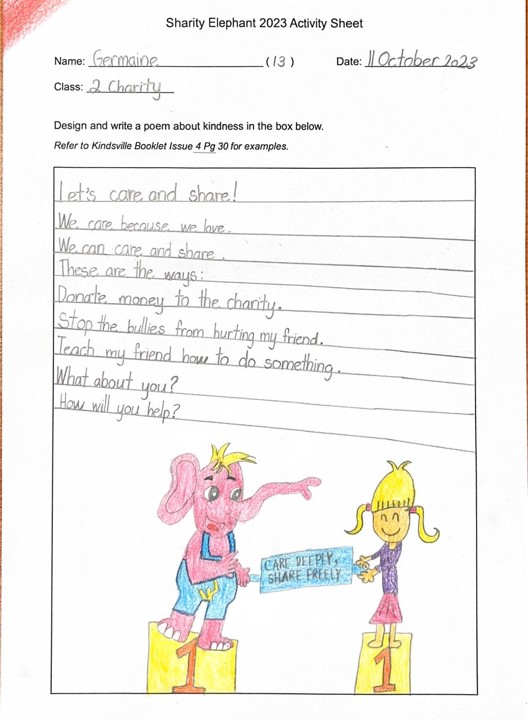 Sharity Elephant 2023 Activity Sheet
Name: Germaine (13) Date: 11 October 2023
Class: 2 Charity
Design and write a poem about kindness in the box below.
Refer to Kindsville Booklet Issue 4 Pg 30 for examples.
Let's care and share!
We care because we love.
We can care and share.
These are the ways:
Donate money to the charity.
Stop the bullies from hurting my friend.
Teach my friend how to do something.
What about you?
How will you help?
CARE DEEPLY,
SHARE FREELY
1 1